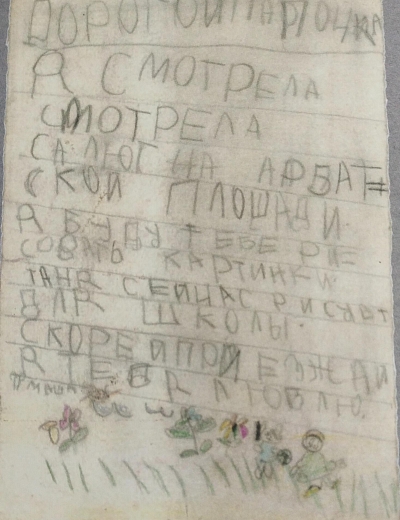 ДОРОГОЙ ПАПОЧКА
Я СМОТРЕЛА
СМОТРЕЛА
САЛЮТ НА АРБАТ=
СКОЙ ПЛОШАДИ
Я БУДУ ТЕБЕ РИ=
СОВАТЬ КАРТИНКИ
ТАНЯ СЕЙЧАС РИСУЕТ
ДЛЯ ШКОЛЫ.
СКОРЕЙ ПРИЕЗЖАЙ
Я ТЕБЯ ЛЮБЛЮ.